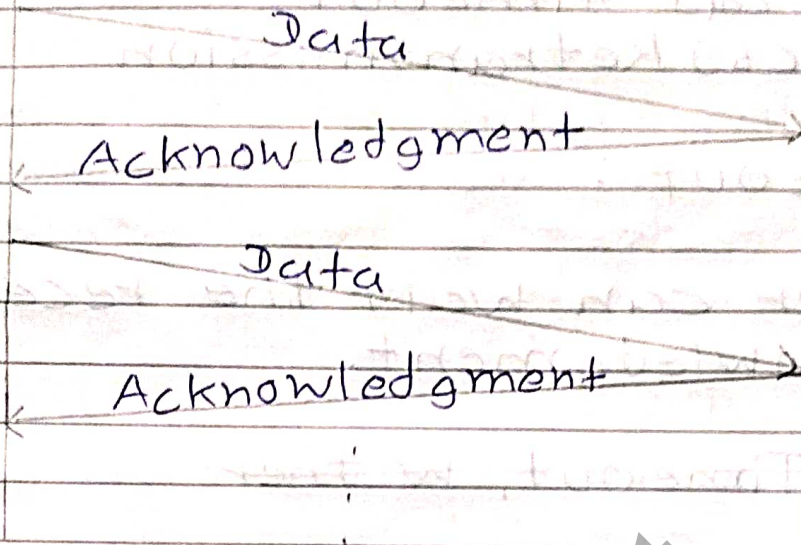 Data
Acknowledgment
Data
Acknowledgment